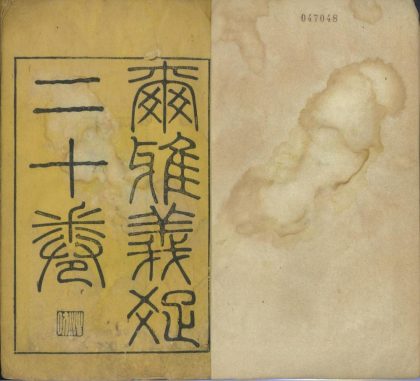 047048
爾雅義疏
二十卷